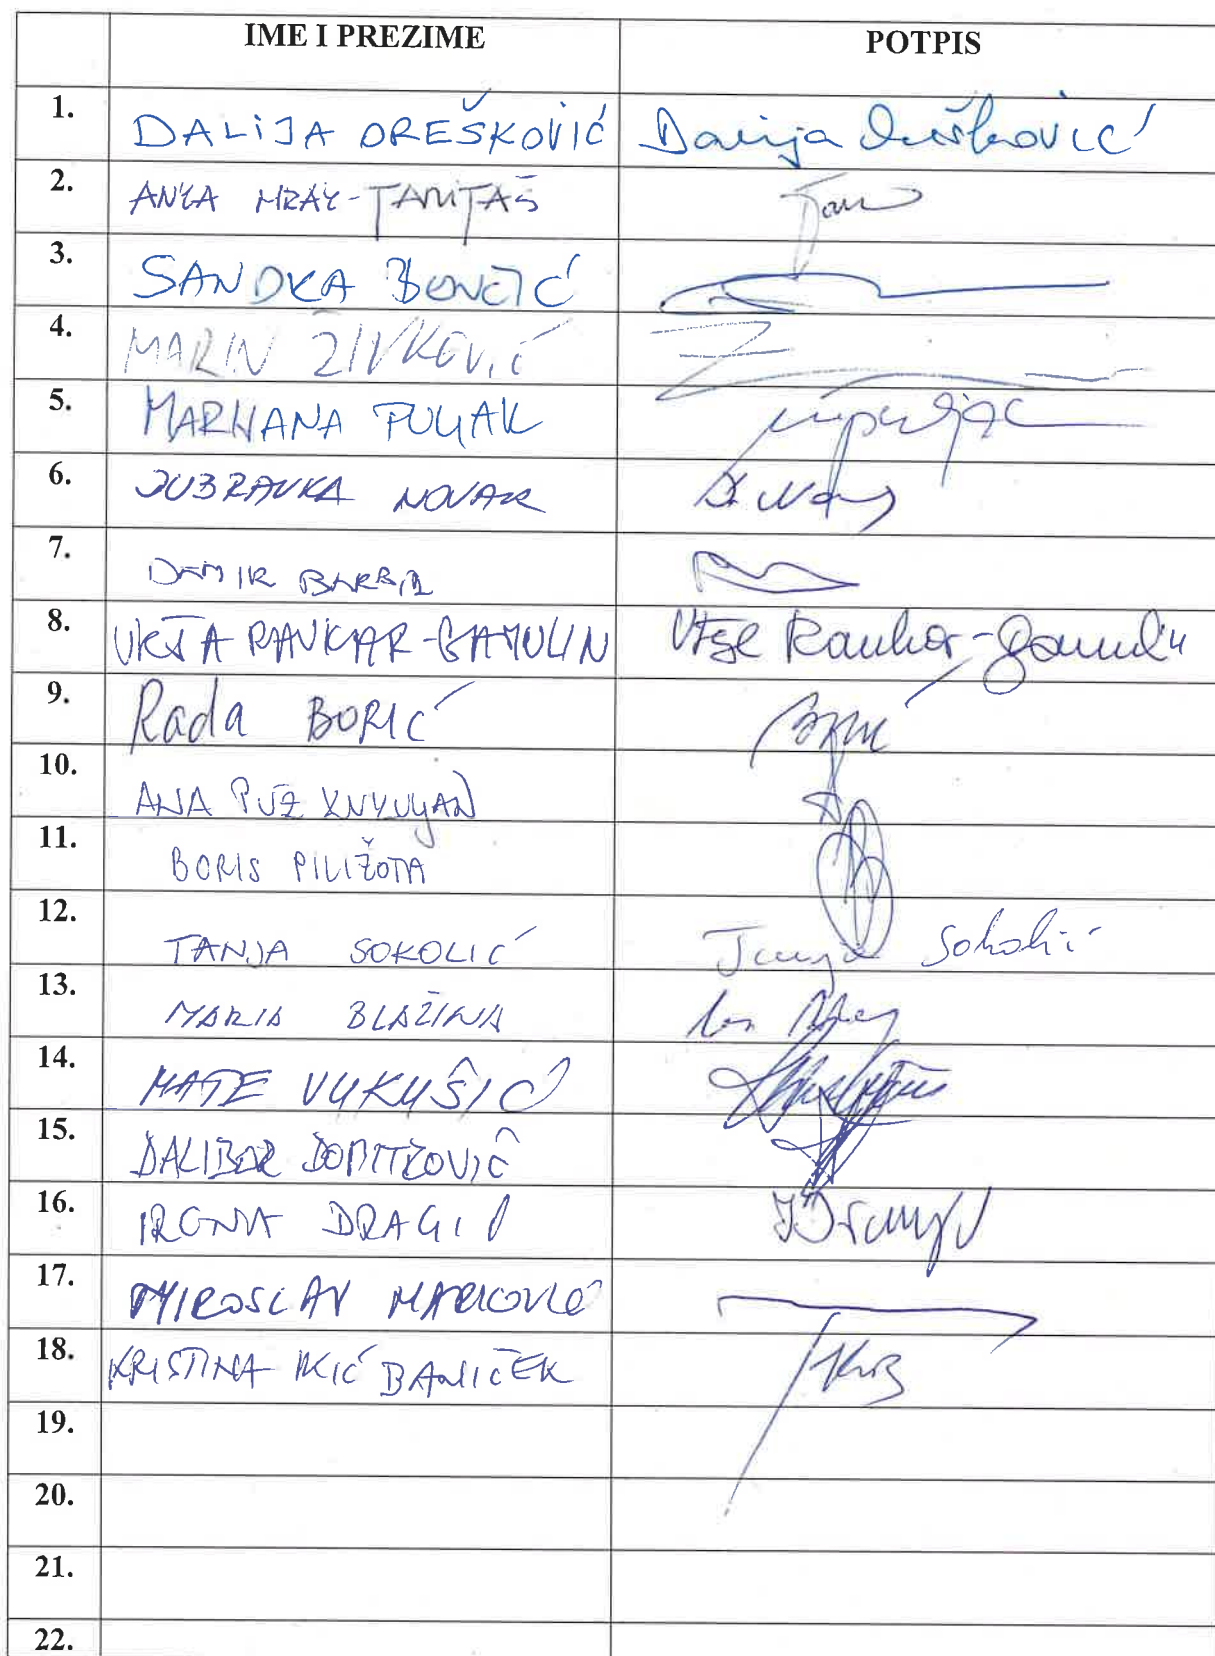 IME I PREZIME POTPIS
1. DALIJA OREŠKOVIĆ Dalija Orešković
2. ANKA MRAK-TARITAŠ
3. SANDRA BENČIĆ
4. MARIN ŽIVKOVIĆ
5. MARIJANA PULJAK mpuljak
6. DUBRAVKA NOVAK D. Novak
7. DAMIR BAKIĆ
8. URŠA RAUKAR-GAMULIN Urša Raukar-Gamulin
9. Rada BORIĆ Borić
10. ANA PUŽ KUKULJAN
11. BORIS PILIŽOTA
12. TANJA SOKOLIĆ Tanja Sokolić
13. MARIA BLAŽINA
14. MATE VUKUŠIĆ
15. DALIBOR DOMITROVIĆ
16. DRAGIJ
17. MIROSLAV MARKOVIĆ
18. KRISTINA IKIĆ BANIČEK
19.
20.
21.
22.